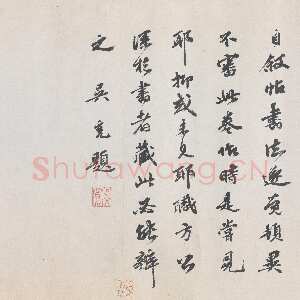 自叙帖書法逈莫類異
不審此卷作時是嘗見
耶抑或未見耶職方公
深於書者藏此必能辨
之吳寬題
Shufawang.CN